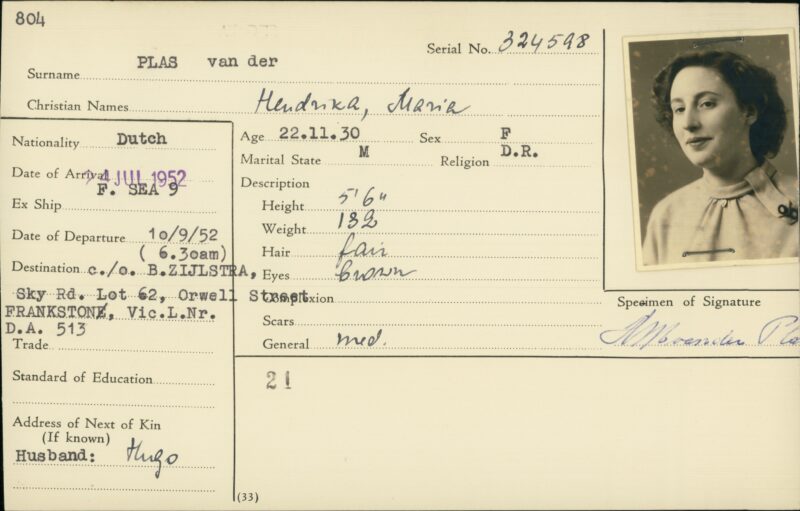 804
Serial No. 324598
PLAS van der
Surname
Christian Names Hendrika, Maria
Nationality Dutch
Date of Arrival 4 JUL 1952
F. SEA 9
Ex Ship
Date of Departure 10/9/52
( 6.30am)
Destination c./o. B.ZIJLSTRA,
Sky Rd. Lot 62, Orwell Street
FRANKSTONE, Vic.L.Nr.
D.A. 513
Trade
Standard of Education
Address of Next of Kin
(If known)
Husband: Hugo
Age 22.11.30 Sex F
Marital State M Religion D.R.
Description
Height 5'6"
Weight 132
Hair fair
Eyes brown
Complexion
Scars
General med.
21
(33)
Specimen of Signature